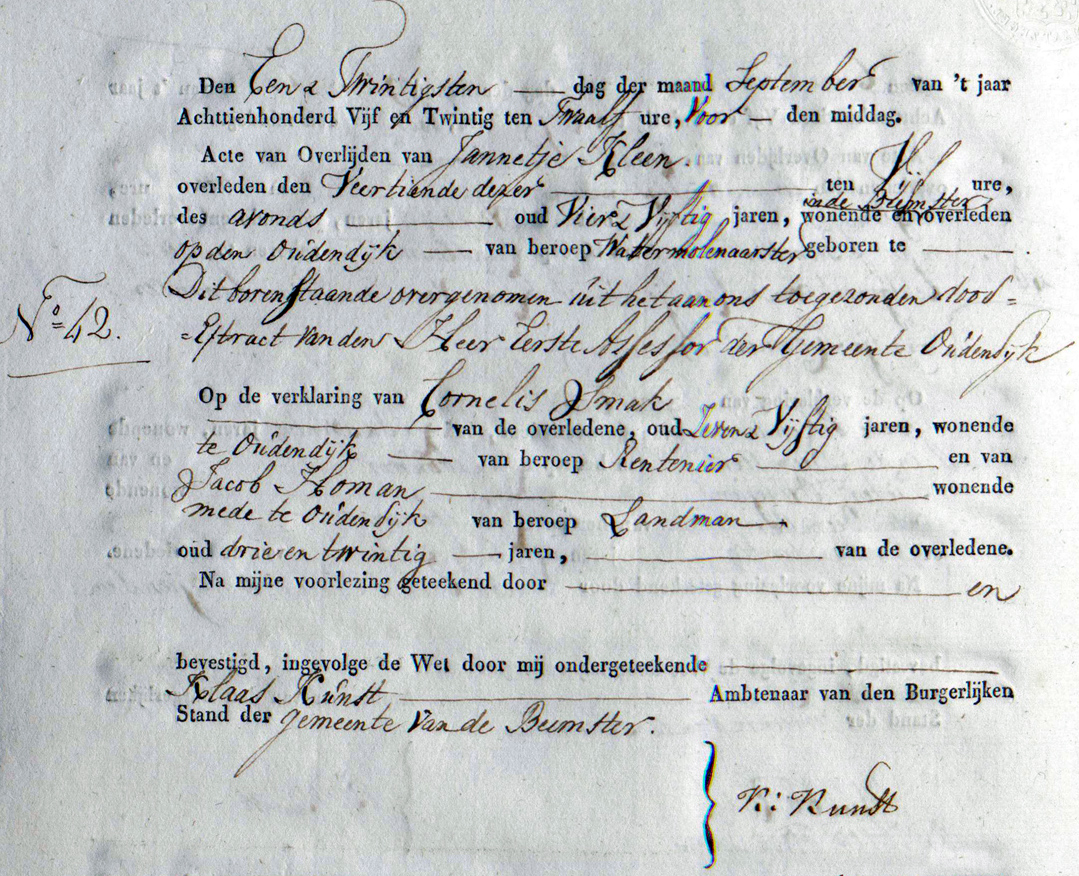 Den Een & Twintigsten dag der maand September van 't jaar
Achttienhonderd Vijf en Twintig ten Twaalf ure, Voor den middag.
Acte van Overlijden van Jannetje Kleen.
overleden den Veertiende dezer ten Vijf ure,
in de Beemster
des avonds oud Vier & Vijftig jaren, wonende en overleden
op den Oudendijk van beroep Watermolenaarster geboren te
Dit bovenstaande overgenomen uit het aan ons toegezonden dood-
No 42.
-Extract van den Heer Eerste Assessor der Gemeente Oudendijk
Op de verklaring van Cornelis Smak
van de overledene, oud Zeven & Vijftig jaren, wonende
te Oudendijk van beroep Rentenier en van
Jacob Homan wonende
mede te Oudendijk van beroep Landman
oud drie en twintig jaren, van de overledene.
Na mijne voorlezing geteekend door en
bevestigd, ingevolge de Wet door mij ondergeteekende
Klaas Kunst Ambtenaar van den Burgerlijken
Stand der gemeente van de Beemster.
K: Kunst